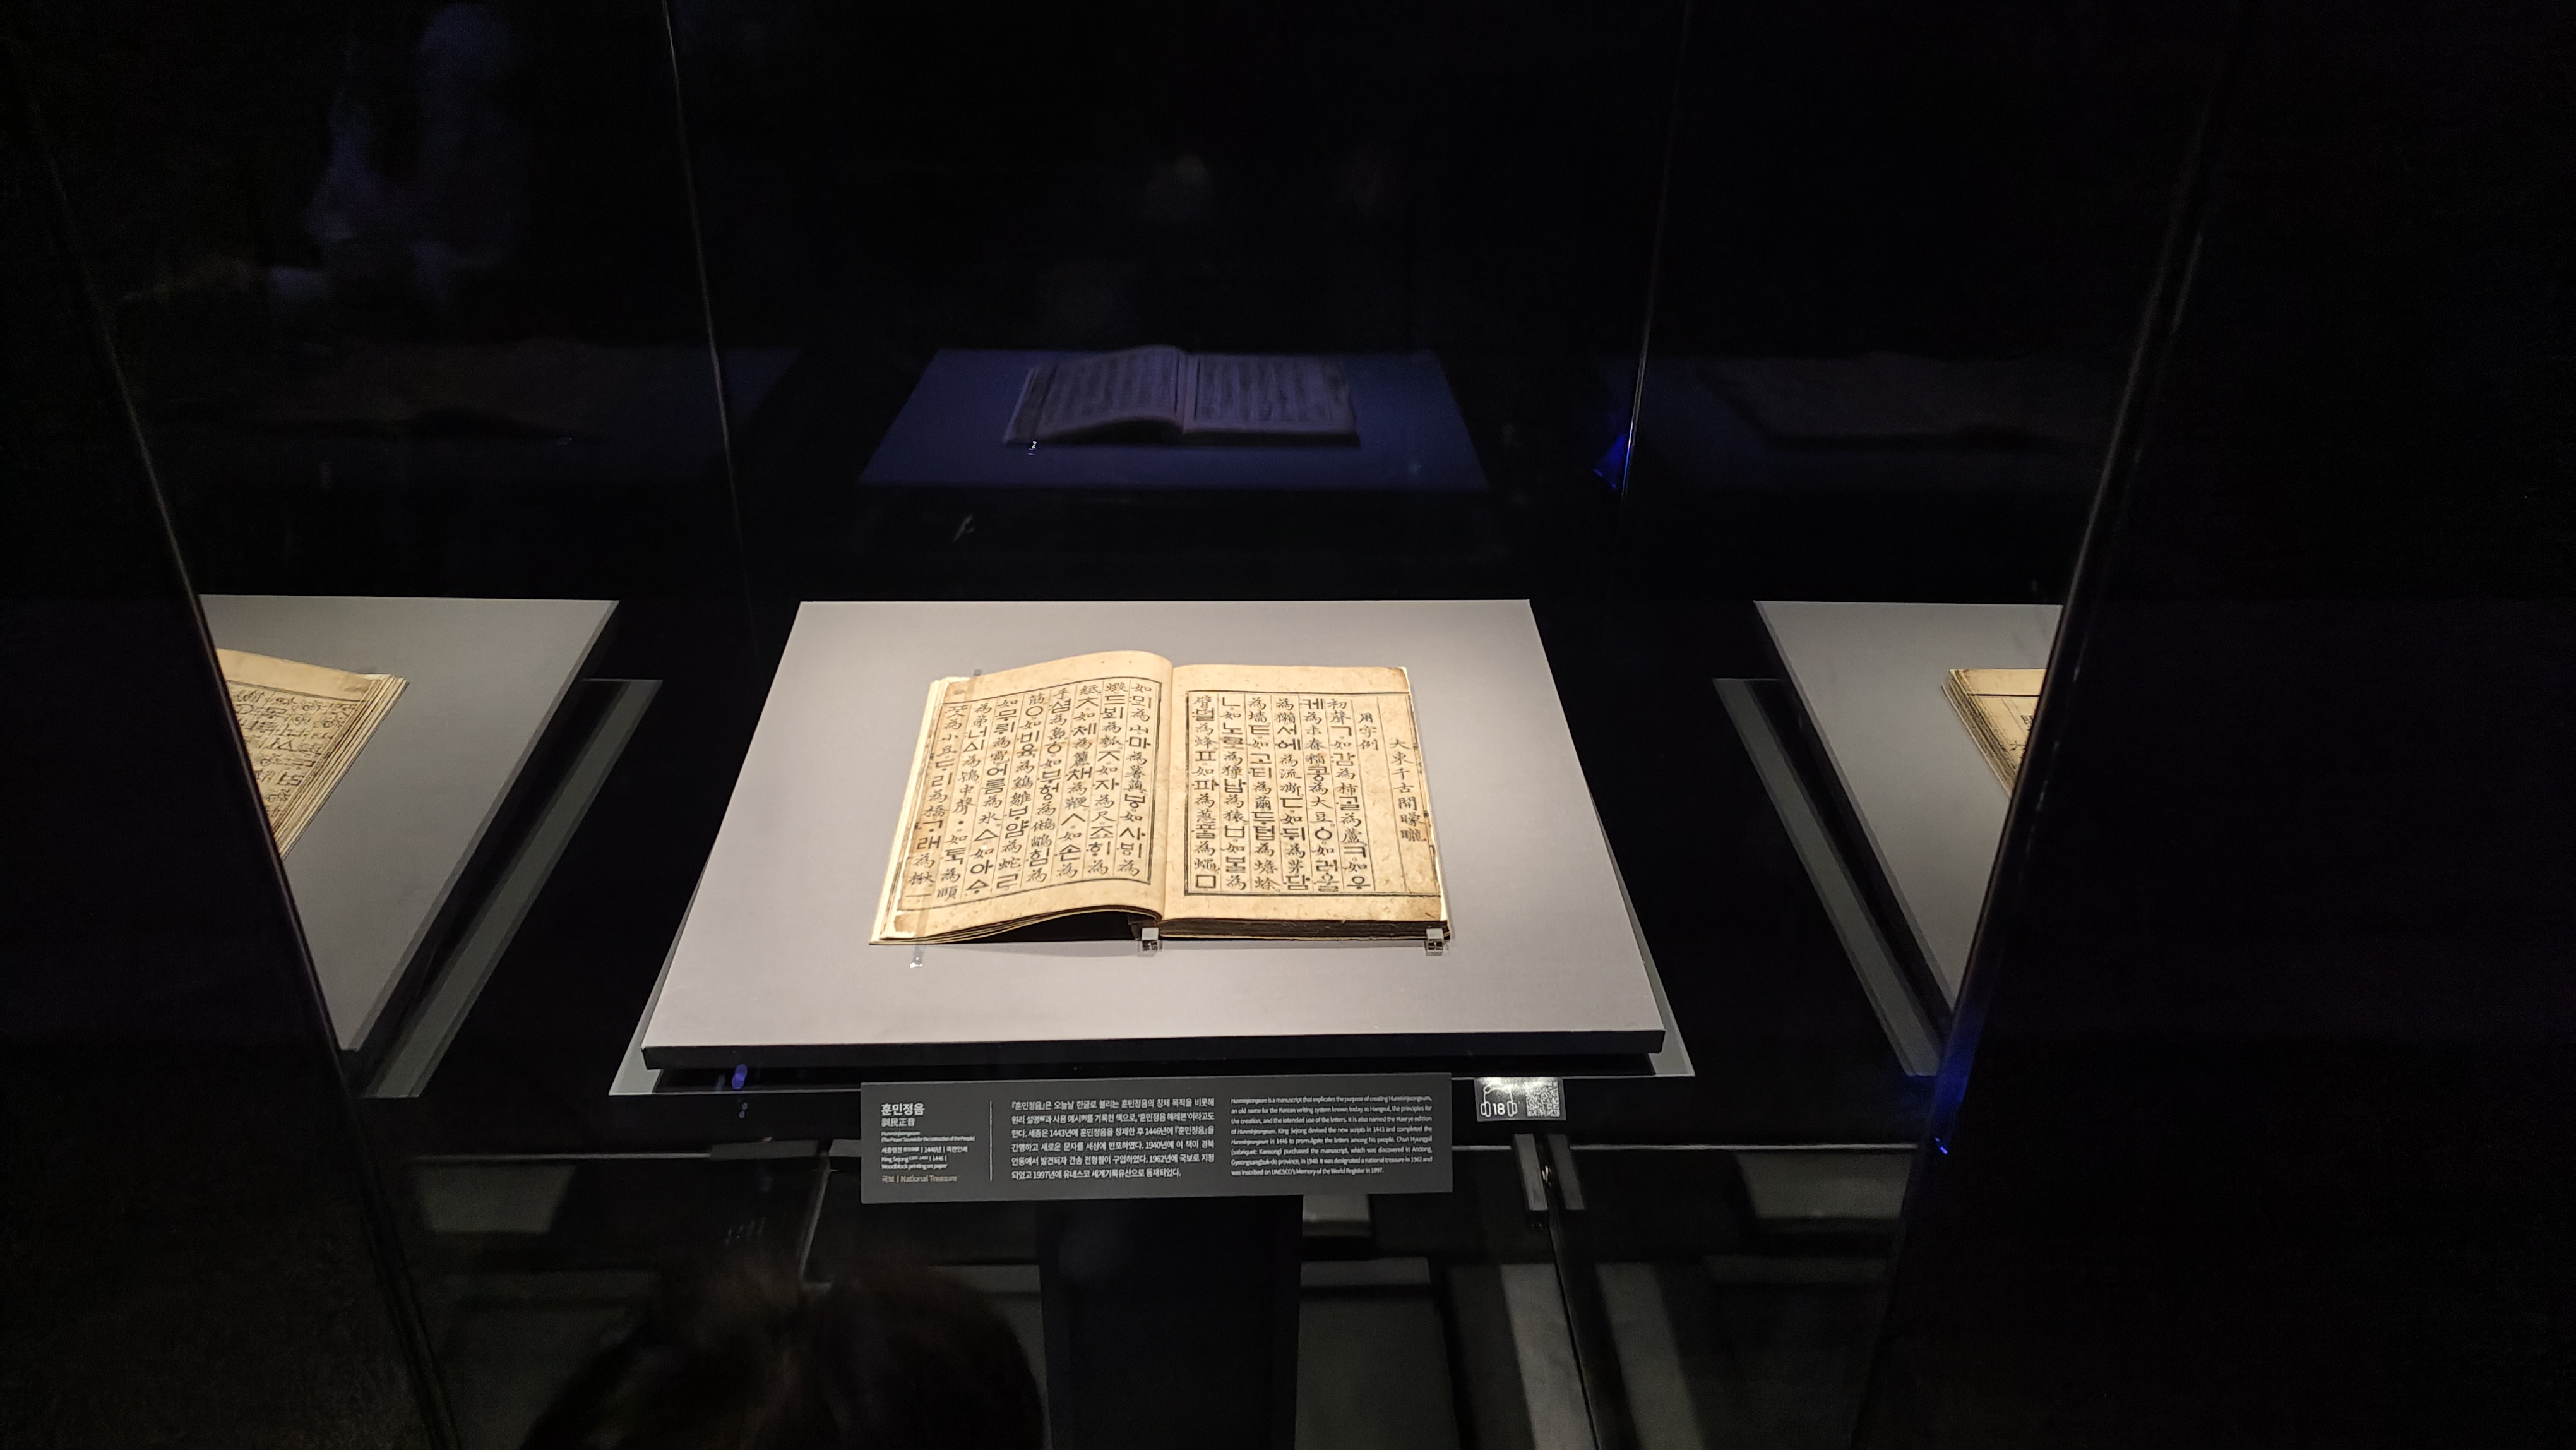 大東千古開矇矓
用字例
初聲ㄱ。如감為柿。ᄀᆞᆯ為蘆。ㅋ。如우
케為未舂稻。콩為大豆。ㆁ。如러울
為獺。서에為流凘。ㄷ。如뒤為茅。담
為墻。ㅌ。如고티為繭。두텁為蟾蜍。
ㄴ。如노로為獐。납為猿。ㅂ。如ᄇᆞᆯ為
臂。벌為蜂。ㅍ。如파為葱。ᄑᆞᆯ為蠅。ㅁ
如뫼為山。마為薯藇。ㅸ。如사ᄫᅵ為
蝦。드ᄫᅴ為瓠。ㅈ。如자為尺。죠ᄒᆡ為
紙。ㅊ。如체為籭。채為鞭。ㅅ。如손為
手。셤為島。ㅎ。如부헝為鵂鶹。힘為
筋。ㅇ。如비육為鷄雛。ᄇᆞ얌為蛇。ㄹ。
如무뤼為雹。어름為氷。ㅿ。如아ᅀᆞ
為弟。너ᅀᅵ為鴇。中聲ㆍ。如ᄐᆞᆨ為頤。
ᄑᆞᆺ為小豆。ᄃᆞ리為橋。ᄀᆞ래為楸。
훈민정음
訓民正音
Hunminjeongeum
(The Proper Sounds for the Instruction of the People)
세종명찬 | 1446년 | 목판인쇄
King Sejong | 1446 |
Woodblock printing on paper
국보 | National Treasure
『훈민정음』은 오늘날 한글로 불리는 훈민정음의 창제 목적을 비롯해
원리 설명과 사용 예시를 기록한 책으로, '훈민정음 해례본'이라고도
한다. 세종은 1443년에 훈민정음을 창제한 후 1446년에 『훈민정음』을
간행하고 새로운 문자를 세상에 반포하였다. 1940년에 이 책이 경북
안동에서 발견되자 간송 전형필이 구입하였다. 1962년에 국보로 지정
되었고 1997년에 유네스코 세계기록유산으로 등재되었다.
Hunminjeongeum is a manuscript that explicates the purpose of creating Hunminjeongeum,
an old name for the Korean writing system known today as Hangeul, the principles for
the creation, and the intended use of the letters. It is also named the Haerye edition
of Hunminjeongeum. King Sejong devised the new scripts in 1443 and completed the
Hunminjeongeum in 1446 to promulgate the letters among his people. Chun Hyungpil
(sobriquet: Kansong) purchased the manuscript, which was discovered in Andong,
Gyeongsangbuk-do province, in 1940. It was designated a national treasure in 1962 and
was inscribed on UNESCO's Memory of the World Register in 1997.
18